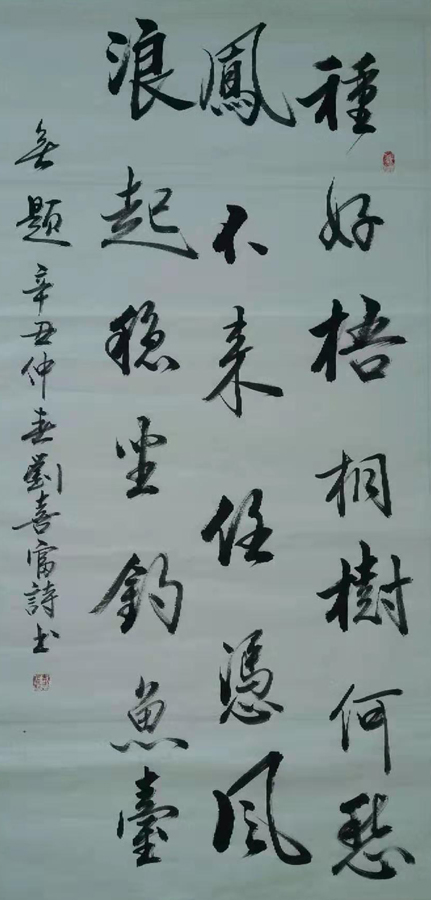 種好梧桐樹何愁
鳳不来任憑風
浪起穏坐釣魚臺
無題 辛丑仲春劉喜富詩書